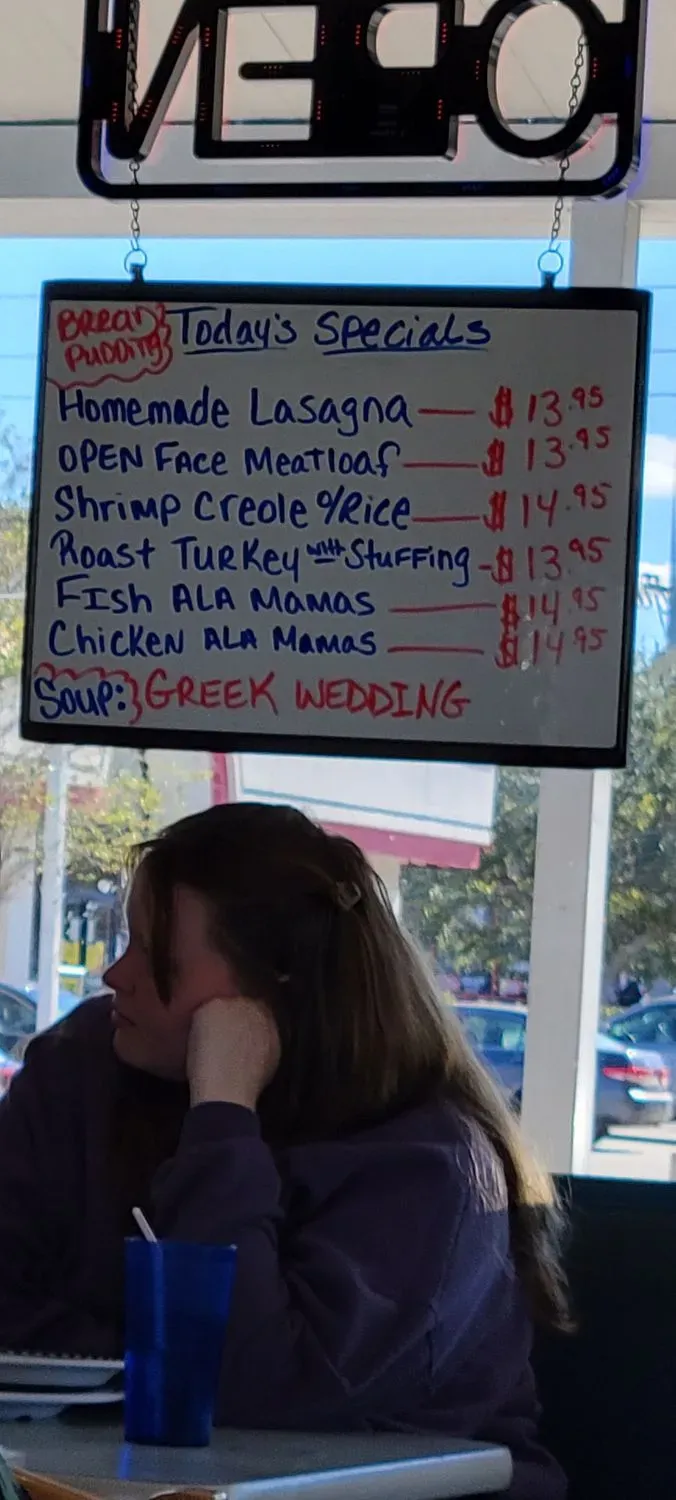 OPEN
BREAD PUDDING
Today's Specials
Homemade Lasagna — $13.95
OPEN FACE MeatloaF — $13.95
Shrimp Creole o/Rice — $14.95
Roast TURKey with StuFFing - $13.95
FIsh ALA Mamas — $14.95
ChicKeN ALA Mamas — $14.95
Soup: GREEK WEDDING